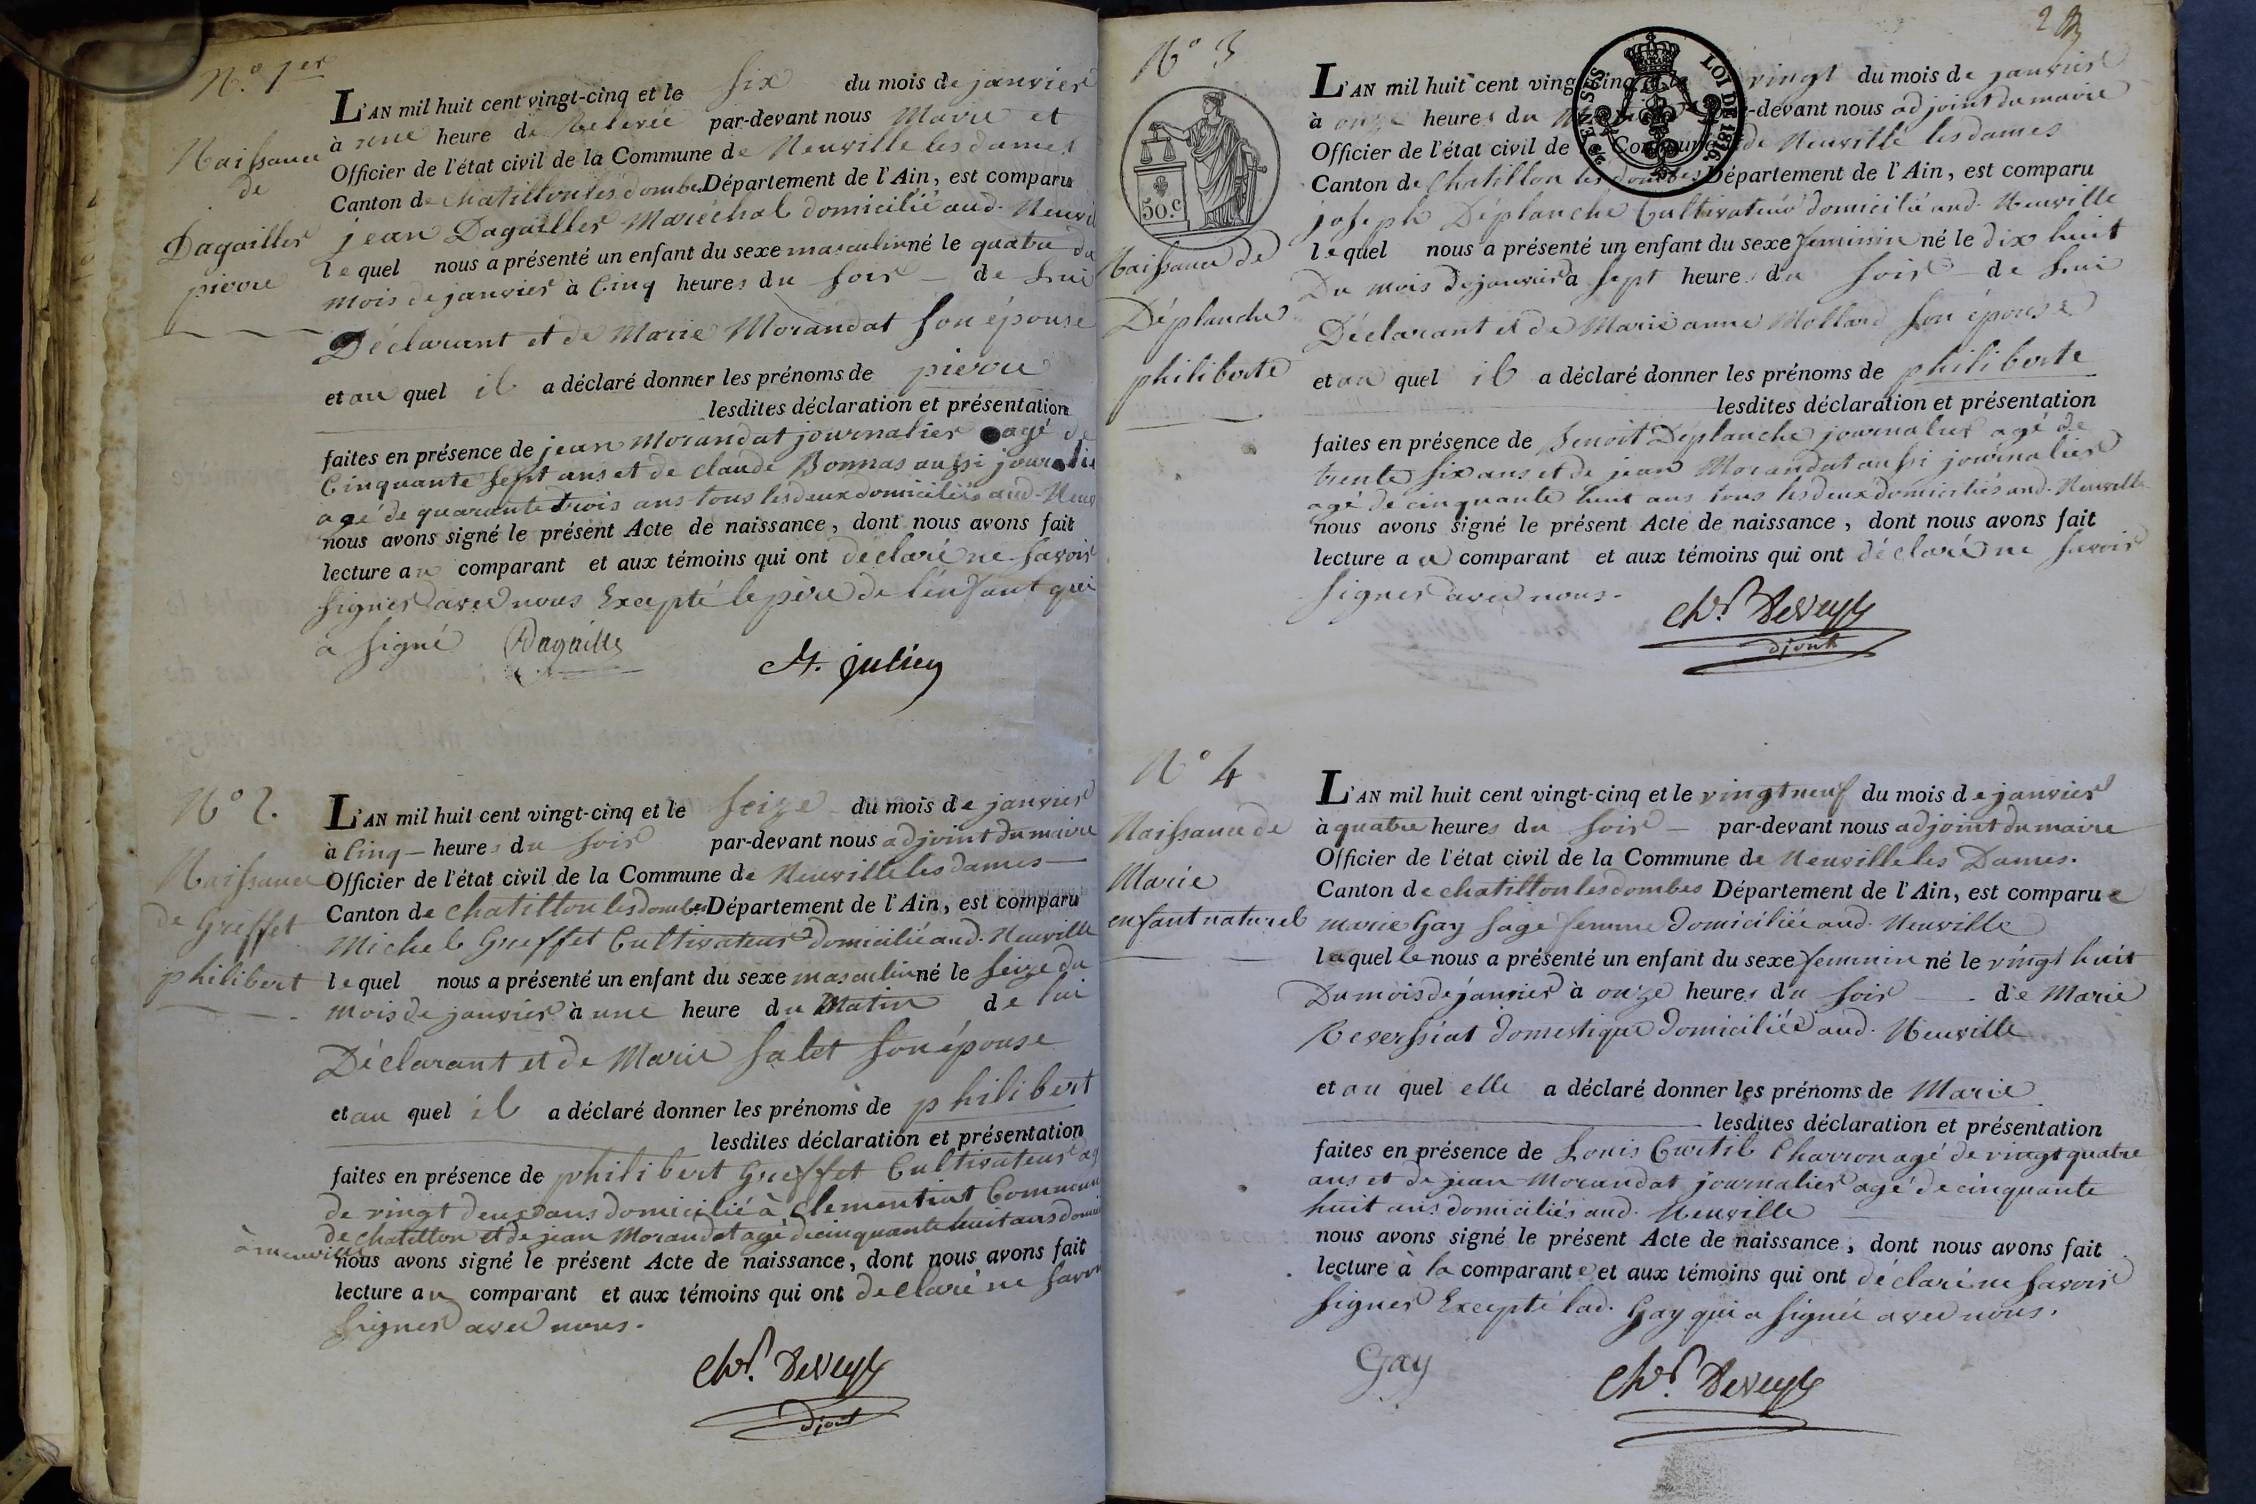 N.º 1er
Naissance
de
Dagallier
pierre
L'AN mil huit cent vingt-cinq et le six du mois de janvier
à une heure de Relevée par-devant nous Maire et
Officier de l'état civil de la Commune de Neuville les dames
Canton de chatillon les dombes Département de l'Ain, est comparu
jean Dagallier Maréchal domicilié aud. Neuvil
lequel nous a présenté un enfant du sexe masculin né le quatre du
mois de janvier à Cinq heures du soir - de Lui
Déclarant et de Marie Morandat son épouse
et au quel il a déclaré donner les prénoms de pierre
lesdites déclaration et présentation
faites en présence de jean Morandat journalier agé de
Cinquante sept ans et de claude Bonnas aussi journalie
agé de quarante trois ans tous les deux domiciliés aud. Neuv
nous avons signé le présent Acte de naissance, dont nous avons fait
lecture au comparant et aux témoins qui ont déclaré ne savoir
signer avec nous Excepté le père de l'enfant qui
a signé Dagallier
M. julien
Nº 2.
Naissance
de Greffet
philibert
L'AN mil huit cent vingt-cinq et le seize du mois de janvier
à Cinq - heures du soir par-devant nous adjoint du maire
Officier de l'état civil de la Commune de Neuville les dames -
Canton de chatillon les dombes Département de l'Ain, est comparu
Michel Greffet Cultivateur domicilié aud. Neuville
lequel nous a présenté un enfant du sexe masculin né le seize du
mois de janvier à une heure du Matin de lui
Déclarant et de Marie Salet son épouse
et au quel il a déclaré donner les prénoms de philibert
lesdites déclaration et présentation
faites en présence de philibert Greffet Cultivateur ag
de vingt deux ans domicilié à Clementiat Commune
de chatillon et de jean Morandat agé de cinquante huit ans domici
à neuville
nous avons signé le présent Acte de naissance, dont nous avons fait
lecture au comparant et aux témoins qui ont declaré ne savoir
signer avec nous.
Chr. Deveyle
djoint
2
Nº 3
5o.c
Naissance de
Déplanche
philiberte
25 EN SUS LOI DE 1816.
L'AN mil huit cent vingt-cinq et le vingt du mois de janvier
à onze heures du par-devant nous adjoint du maire
Officier de l'état civil de la Commune de Neuville les dames
Canton de Chatillon les dombes Département de l'Ain, est comparu
joseph Déplanche Cultivateur domicilié aud. Neuville
lequel nous a présenté un enfant du sexe feminin né le dix huit
Du mois de janvier à sept heures du soir - de Lui
Déclarant et de Marie anne Mollard son épouse
et au quel il a déclaré donner les prénoms de philiberte
lesdites déclaration et présentation
faites en présence de Benoit Déplanche journalier agé de
trente six ans et de jean Morandat aussi journalier
agé de cinquante huit ans tous les deux domiciliés aud. Neuville
nous avons signé le présent Acte de naissance, dont nous avons fait
lecture au comparant et aux témoins qui ont déclaré ne savoir
signer avec nous.
Chr. Deveyle
djoint
Nº 4
Naissance de
Marie
enfant naturel
L'AN mil huit cent vingt-cinq et le vingt neuf du mois de janvier
à quatre heures du soir - par-devant nous adjoint du maire
Officier de l'état civil de la Commune de Neuville les Dames.
Canton de chatillon les dombes Département de l'Ain, est comparue
marie Gay sage femme domiciliée aud. Neuville
laquelle nous a présenté un enfant du sexe feminin né le vingt huit
Du mois de janvier à onze heures du soir - de Marie
Reverssiat domestique domiciliée aud. Neuville
et au quel elle a déclaré donner les prénoms de Marie
lesdites déclaration et présentation
faites en présence de Louis Curtil Charron agé de vingt quatre
ans et de jean Morandat journalier agé de cinquante
huit ans domiciliés aud. Neuville
nous avons signé le présent Acte de naissance, dont nous avons fait
lecture à la comparante et aux témoins qui ont déclaré ne savoir
signer Excepté lad. Gay qui a signée avec nous.
Gay
Chr. Deveyle